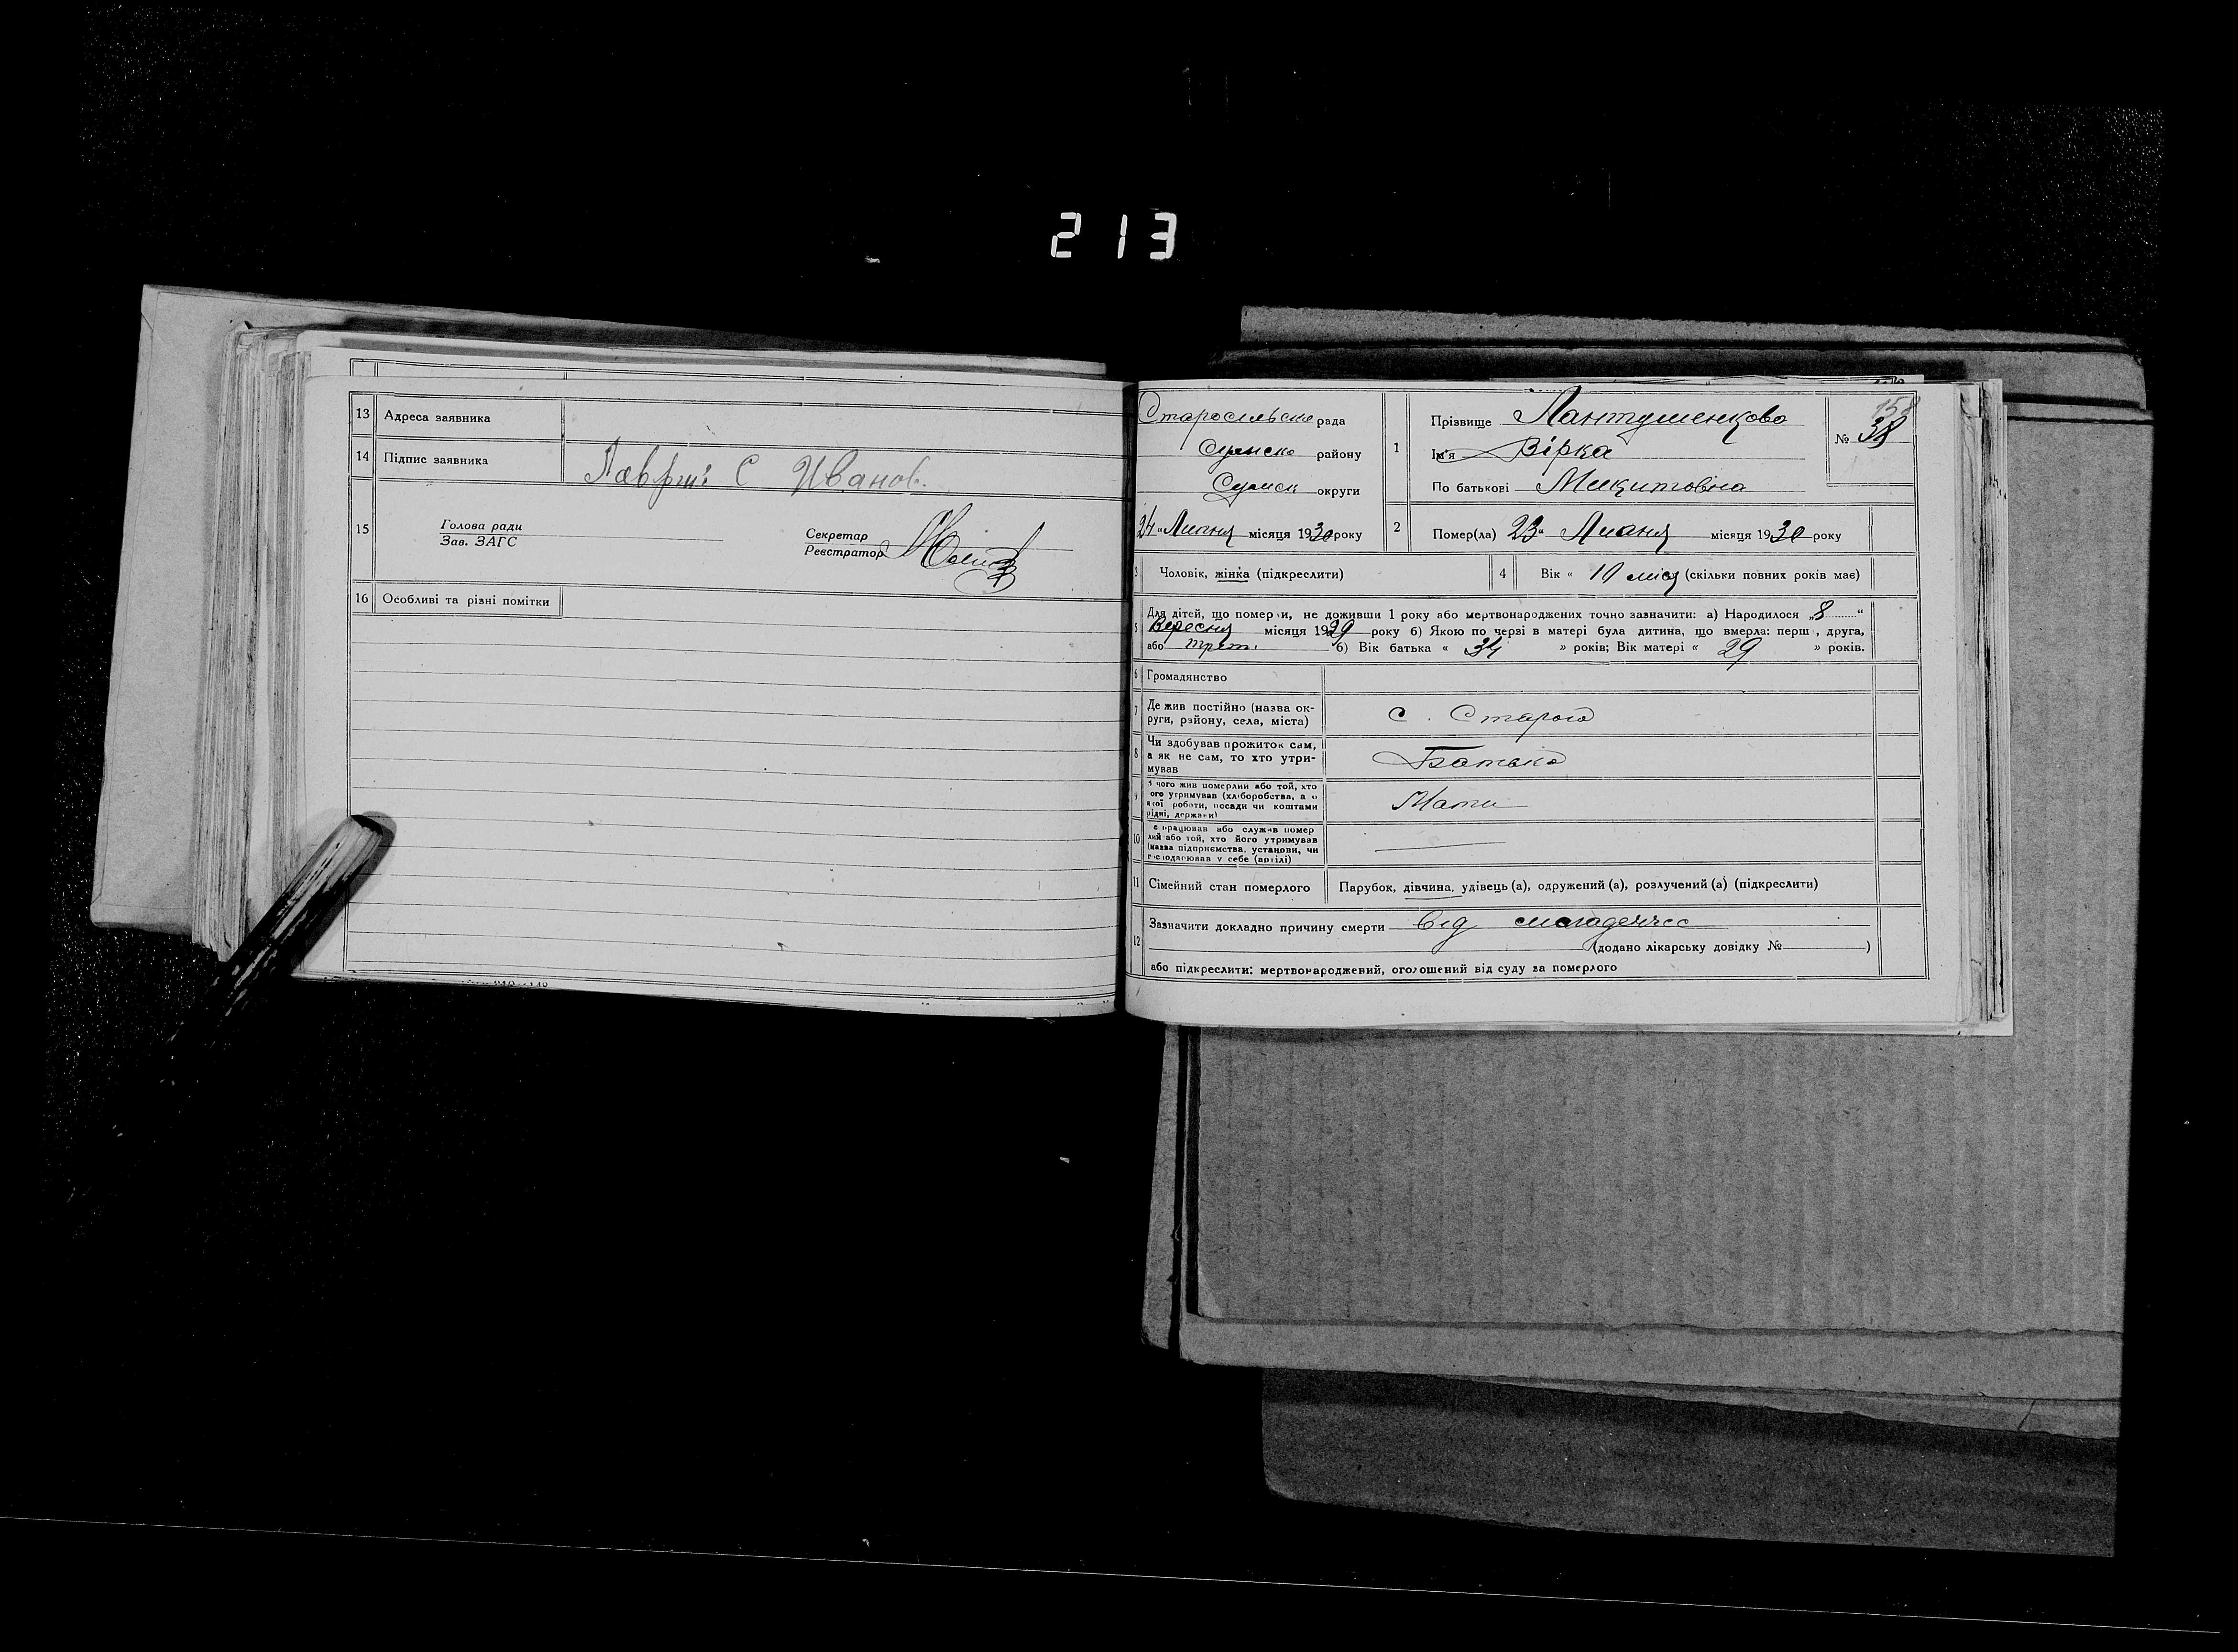 213
13 Адреса заявника
14 Підпис заявника С Иванов.
15 Голова ради
Зав. ЗАГС
Секретар
Реєстратор
16 Особливі та різні помітки
Старосільска рада
Сумско району
Сумск округи
24 „ Липня місяця 1930 року
1 Прізвище Лантушенкова
Ім'я Вірка
По батькові Микитовна
158
№ 38
2 Помер(ла) 23 „ Липня місяця 1930 року
3 Чоловік, жінка (підкреслити)
4 Вік « 10 міся (скільки повних років має)
5 Для дітей, що померли, не доживши 1 року або мертвонароджених точно зазначити: а) Народилося „ 8 “
Вересня місяця 1929 року б) Якою по черзі в матері була дитина, що вмерла: перш , друга,
або трет. б) Вік батька « 34 » років; Вік матері « 29 » років.
6 Громадянство
7 Де жив постійно (назва ок-
руги, району, села, міста) с. Старого
8 Чи здобував прожиток сам,
а як не сам, то хто утри-
мував Батько
9 з чого жив померлий або той, хто
ого утримував (хліборобства, а о
якої роботи, посади чи коштами
рідні, держави) Мати
10 е працював або служив помер
лий або той, хто його утримував
(назва підприємства, установи, чи
господарював у себе (артілі)
11 Сімейний стан померлого Парубок, дівчина, удівець (а), одружений (а), розлучений (а) (підкреслити)
12 Зазначити докладно причину смерти від
(додано лікарську довідку № )
або підкреслити: мертвонароджений, оголошений від суду за померлого